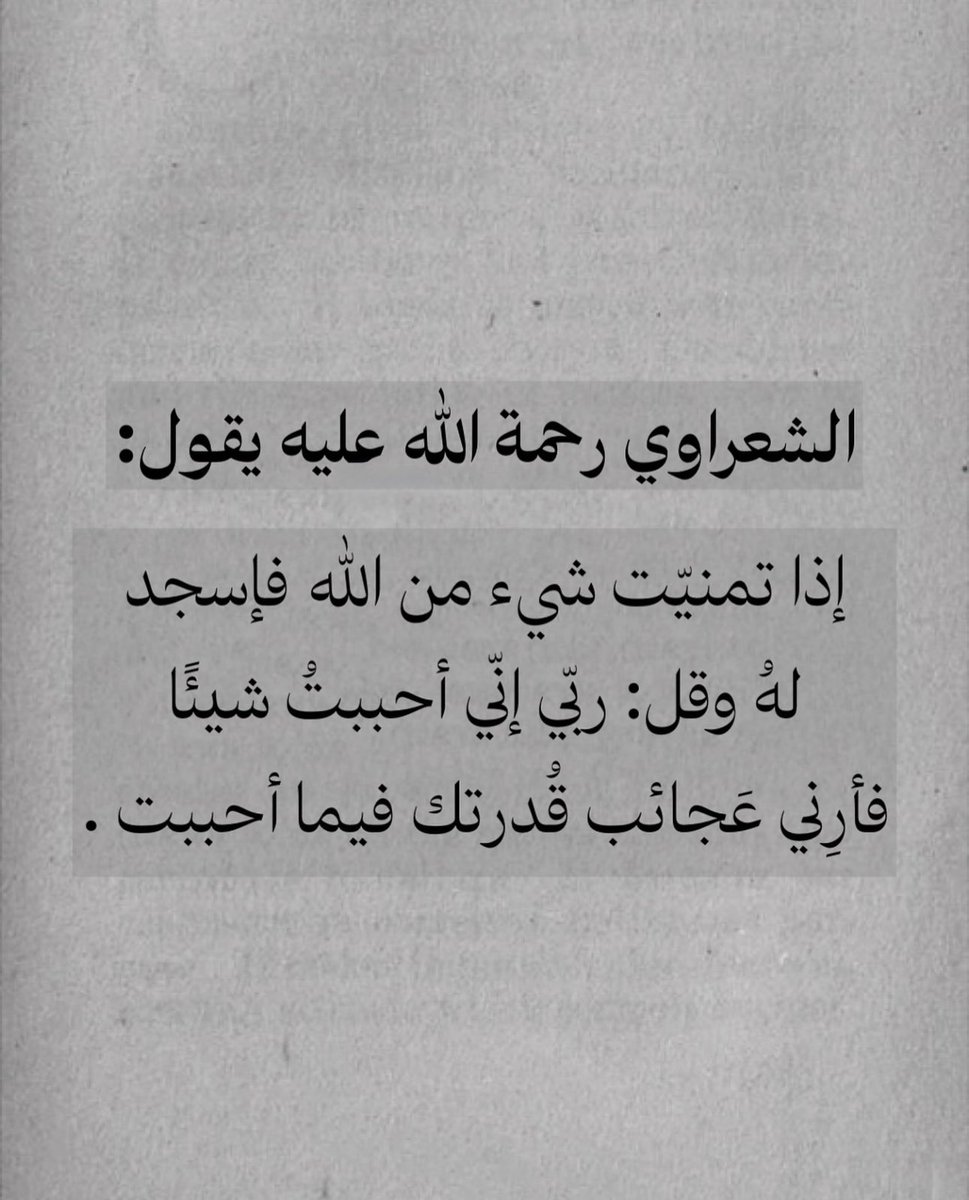 الشعراوي رحمة الله عليه يقول:
إذا تمنيّت شيء من الله فإسجد
لهُ وقل: ربّي إنّي أحببتُ شيئًا
فأرِني عَجائب قُدرتك فيما أحببت .